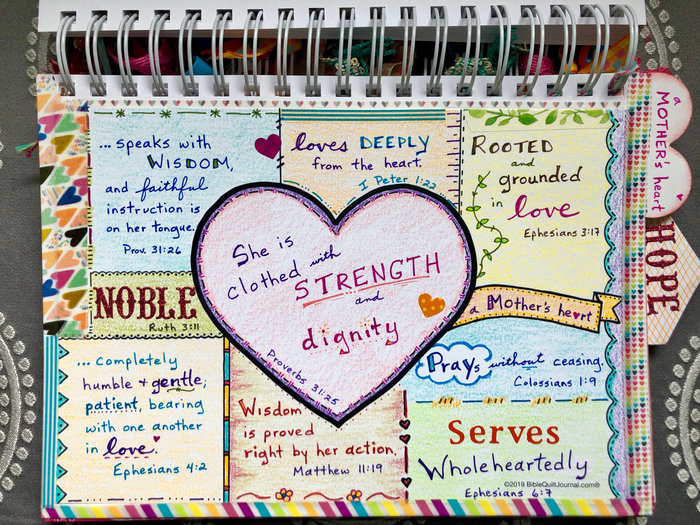 ... speaks with
WISDOM,
and faithful
instruction is
on her tongue.
Prov. 31:26
loves DEEPLY
from the heart.
I Peter 1:22
ROOTED
and
grounded
in love
Ephesians 3:17
a
MOTHER'S
heart
HOPE
She is
clothed with
STRENGTH
and
dignity
Proverbs 31:25
NOBLE
Ruth 3:11
a Mother's heart
... completely
humble + gentle;
patient, bearing
with one another
in love.
Ephesians 4:2
Wisdom
is proved
right by her action.
Matthew 11:19
Prays without ceasing.
Colossians 1:9
Serves
Wholeheartedly
©2019 BibleQuiltJournal.com®
Ephesians 6:7